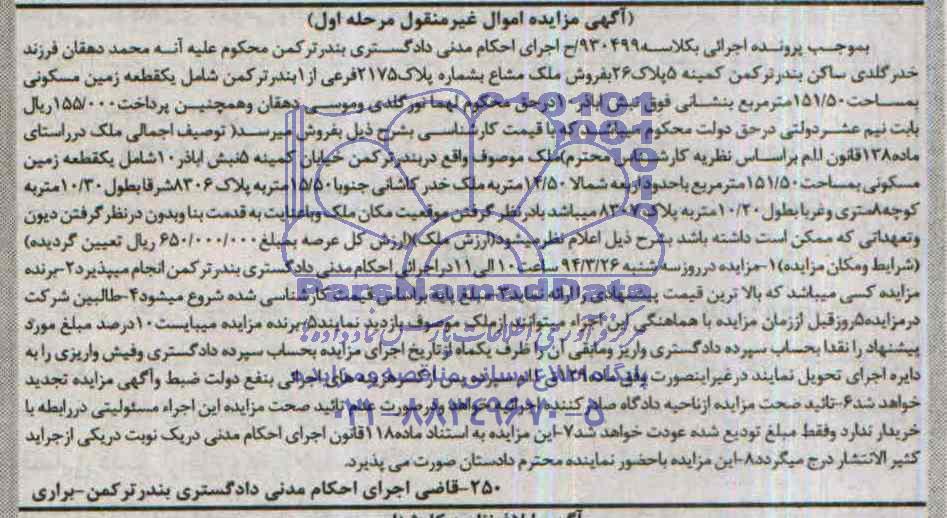 (آگهی مزایده اموال غیرمنقول مرحله اول)
بموجب پرونده اجرائی بکلاسه ۹۳۰۴۹۹/ح اجرای احکام مدنی دادگستری بندرترکمن محکوم علیه آنه محمد دهقان فرزند
خدرگلدی ساکن بندرترکمن کمینه ۵پلاک۲۶بفروش ملک مشاع بشماره پلاک۲۱۷۵فرعی از۱بندرترکمن شامل یکقطعه زمین مسکونی
بمساحت۱۵۱/۵۰مترمربع بنشانی فوق نبش اباذر۱۰درحق محکوم لهما نورگلدی وموسی دهقان وهمچنین پرداخت۱۵۵/۰۰۰ریال
بابت نیم عشردولتی درحق دولت محکوم میباشد که با قیمت کارشناسی بشرح ذیل بفروش میرسد( توصیف اجمالی ملک درراستای
ماده۱۳۸قانون ا.ا.م براساس نظریه کارشناس محترم)ملک موصوف واقع دربندرترکمن خیابان کمینه ۵نبش اباذر۱۰شامل یکقطعه زمین
مسکونی بمساحت۱۵۱/۵۰مترمربع باحدود اربعه شمالا ۱۴/۵۰متربه ملک خدر کاشانی جنوبا۱۵/۵۰متربه پلاک ۸۳۰۶شرقابطول۱۰/۳۰متربه
کوچه۸متری وغربابطول۱۰/۲۰متربه پلاک۸۳۰۷میباشد بادرنظرگرفتن موقعیت مکان ملک وباعنایت به قدمت بنا وبدون درنظرگرفتن دیون
وتعهداتی که ممکن است داشته باشد بشرح ذیل اعلام نظرمیشود(ارزش ملک)(ارزش کل عرصه بمبلغ۶۵۰/۰۰۰/۰۰۰ ریال تعیین گردیده)
(شرایط ومکان مزایده)۱-مزایده درروزسه شنبه ۹۴/۳/۲۶ ساعت۱۰الی۱۱دراجرائی احکام مدنی دادگستری بندرترکمن انجام میپذیرد۲-برنده
مزایده کسی میباشد که بالا ترین قیمت پیشنهادی را ارائه نماید۳-مبلغ پایه براساس قیمت کارشناسی شده شروع میشود۴-طالبین شرکت
درمزایده۵روزقبل اززمان مزایده با هماهنگی این اجراء میتوانند ازملک موصوف بازدید نمایند۵-برنده مزایده میبایست۱۰درصد مبلغ مورد
پیشنهاد را نقدا بحساب سپرده دادگستری واریز ومابقی آن را ظرف یکماه ازتاریخ اجرای مزایده بحساب سپرده دادگستری وفیش واریزی را به
دایره اجرای تحویل نمایند درغیراینصورت وفق ماده۱۲۹ق ا.ا.م سپرده پس ازکسرهزینه های اجرائی بنفع دولت ضبط وآگهی مزایده تجدید
خواهد شد۶-تائید صحت مزایده ازناحیه دادگاه صادرکننده اجرائیه خواهد ودرصورت عدم تائید صحت مزایده این اجراء مسئولیتی دررابطه با
خریدار ندارد وفقط مبلغ تودیع شده عودت خواهد شد۷-این مزایده به استناد ماده۱۱۸قانون اجرای احکام مدنی دریک نوبت دریکی ازجراید
کثیر الانتشار درج میگردد۸-این مزایده باحضور نماینده محترم دادستان صورت می پذیرد.
۲۵۰-قاضی اجرای احکام مدنی دادگستری بندرترکمن-براری
ParsNamadData
پایگاه اطلاع رسانی مناقصه و مزایده
۰۲۱-۸۸۳۴۹۶۷۰-۵